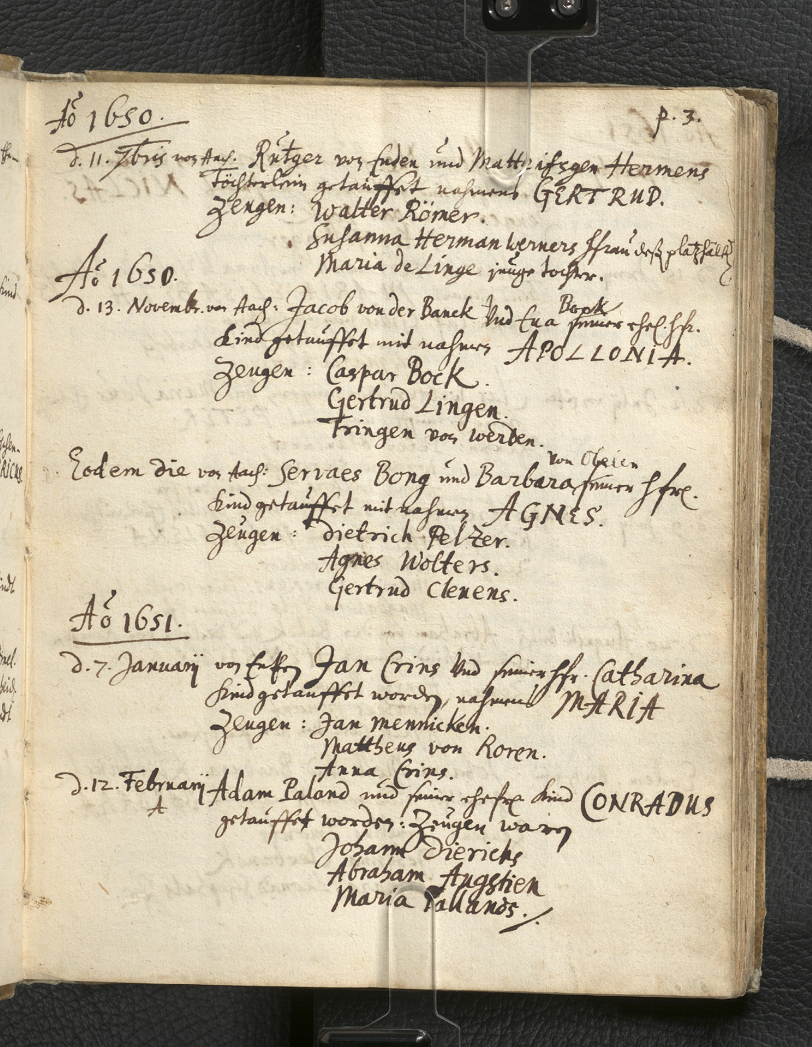 Aõ 1650.
p. 3.
d. 11. 7bris von Aach: Rütger von Enden und Matthisgen Hermens
Töchterlein getauffet nahmens GERTRUD.
Zeugen: Walter Römer.
Susanna Herman Werners hfrau deß platzhalt
Maria de Linge junge tochter.
Aõ 1650.
d. 13. Novembr. von Aach: Jacob von der Banck Und Eva Bock seiner ehel. hfr.
Kind getauffet mit nahmen APOLLONIA.
Zeugen: Caspar Bock.
Gertrud Lingen.
Tringen von werden.
Eodem die von Aach: Servaes Bong und Barbara von seiner hfr.
Kind getauffet mit nahmen AGNES.
Zeugen: Dietrich Pelzer.
Agnes Wolters.
Gertrud Clemens.
Aõ 1651.
d. 7. Januarij von Jan Crins Und seiner hfr. Catharina
Kind getauffet worden, nahmens MARIA
Zeugen: Jan Mennicken.
Mattheus von Roren.
Anna Crins.
d. 12. Februarij Adam Paland und seiner ehefr. Kind CONRADUS
A
getauffet worden: Zeugen waren
Johann Dierichs
Abraham Angstien
Maria Pallands.